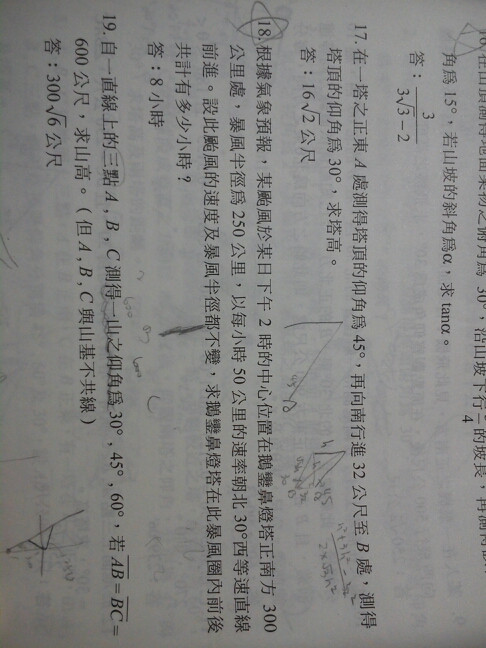 16. 在山頂測得地面某物之俯角為 30°，沿山坡下行 1/4 的坡長，再測得
角為 15°，若山坡的斜角為α，求 tanα。
答：3/(3√3−2)
17. 在一塔之正東 A 處測得塔頂的仰角為 45°，再向南行進 32 公尺至 B 處，測得
塔頂的仰角為 30°，求塔高。
答：16√2 公尺
18. 根據氣象預報，某颱風於某日下午 2 時的中心位置在鵝鑾鼻燈塔正南方 300
公里處，暴風半徑為 250 公里，以每小時 50 公里的速率朝北 30°西等速直線
前進。設此颱風的速度及暴風半徑都不變，求鵝鑾鼻燈塔在此暴風圈內前後
共計有多少小時？
答：8 小時
19. 自一直線上的三點 A , B , C 測得一山之仰角為 30°，45°，60°，若 AB = BC =
600 公尺，求山高。（但 A , B , C 與山基不共線）
答：300√6 公尺